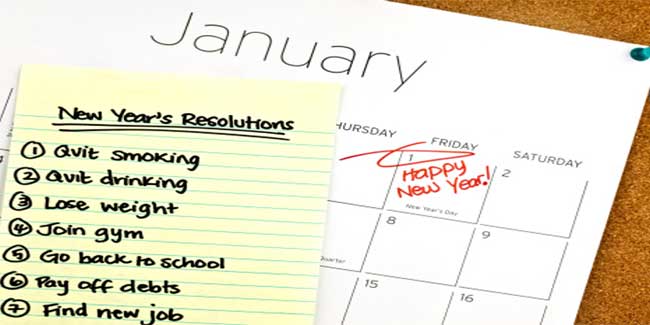 January
New Year's Resolutions
① Quit smoking
② Quit drinking
③ Lose weight
④ Join gym
⑤ Go back to school
⑥ Pay off debts
⑦ Find new job
THURSDAY FRIDAY SATURDAY
1 2
Happy
New Year!
New Year's Day
8 9
Quarter
15 16